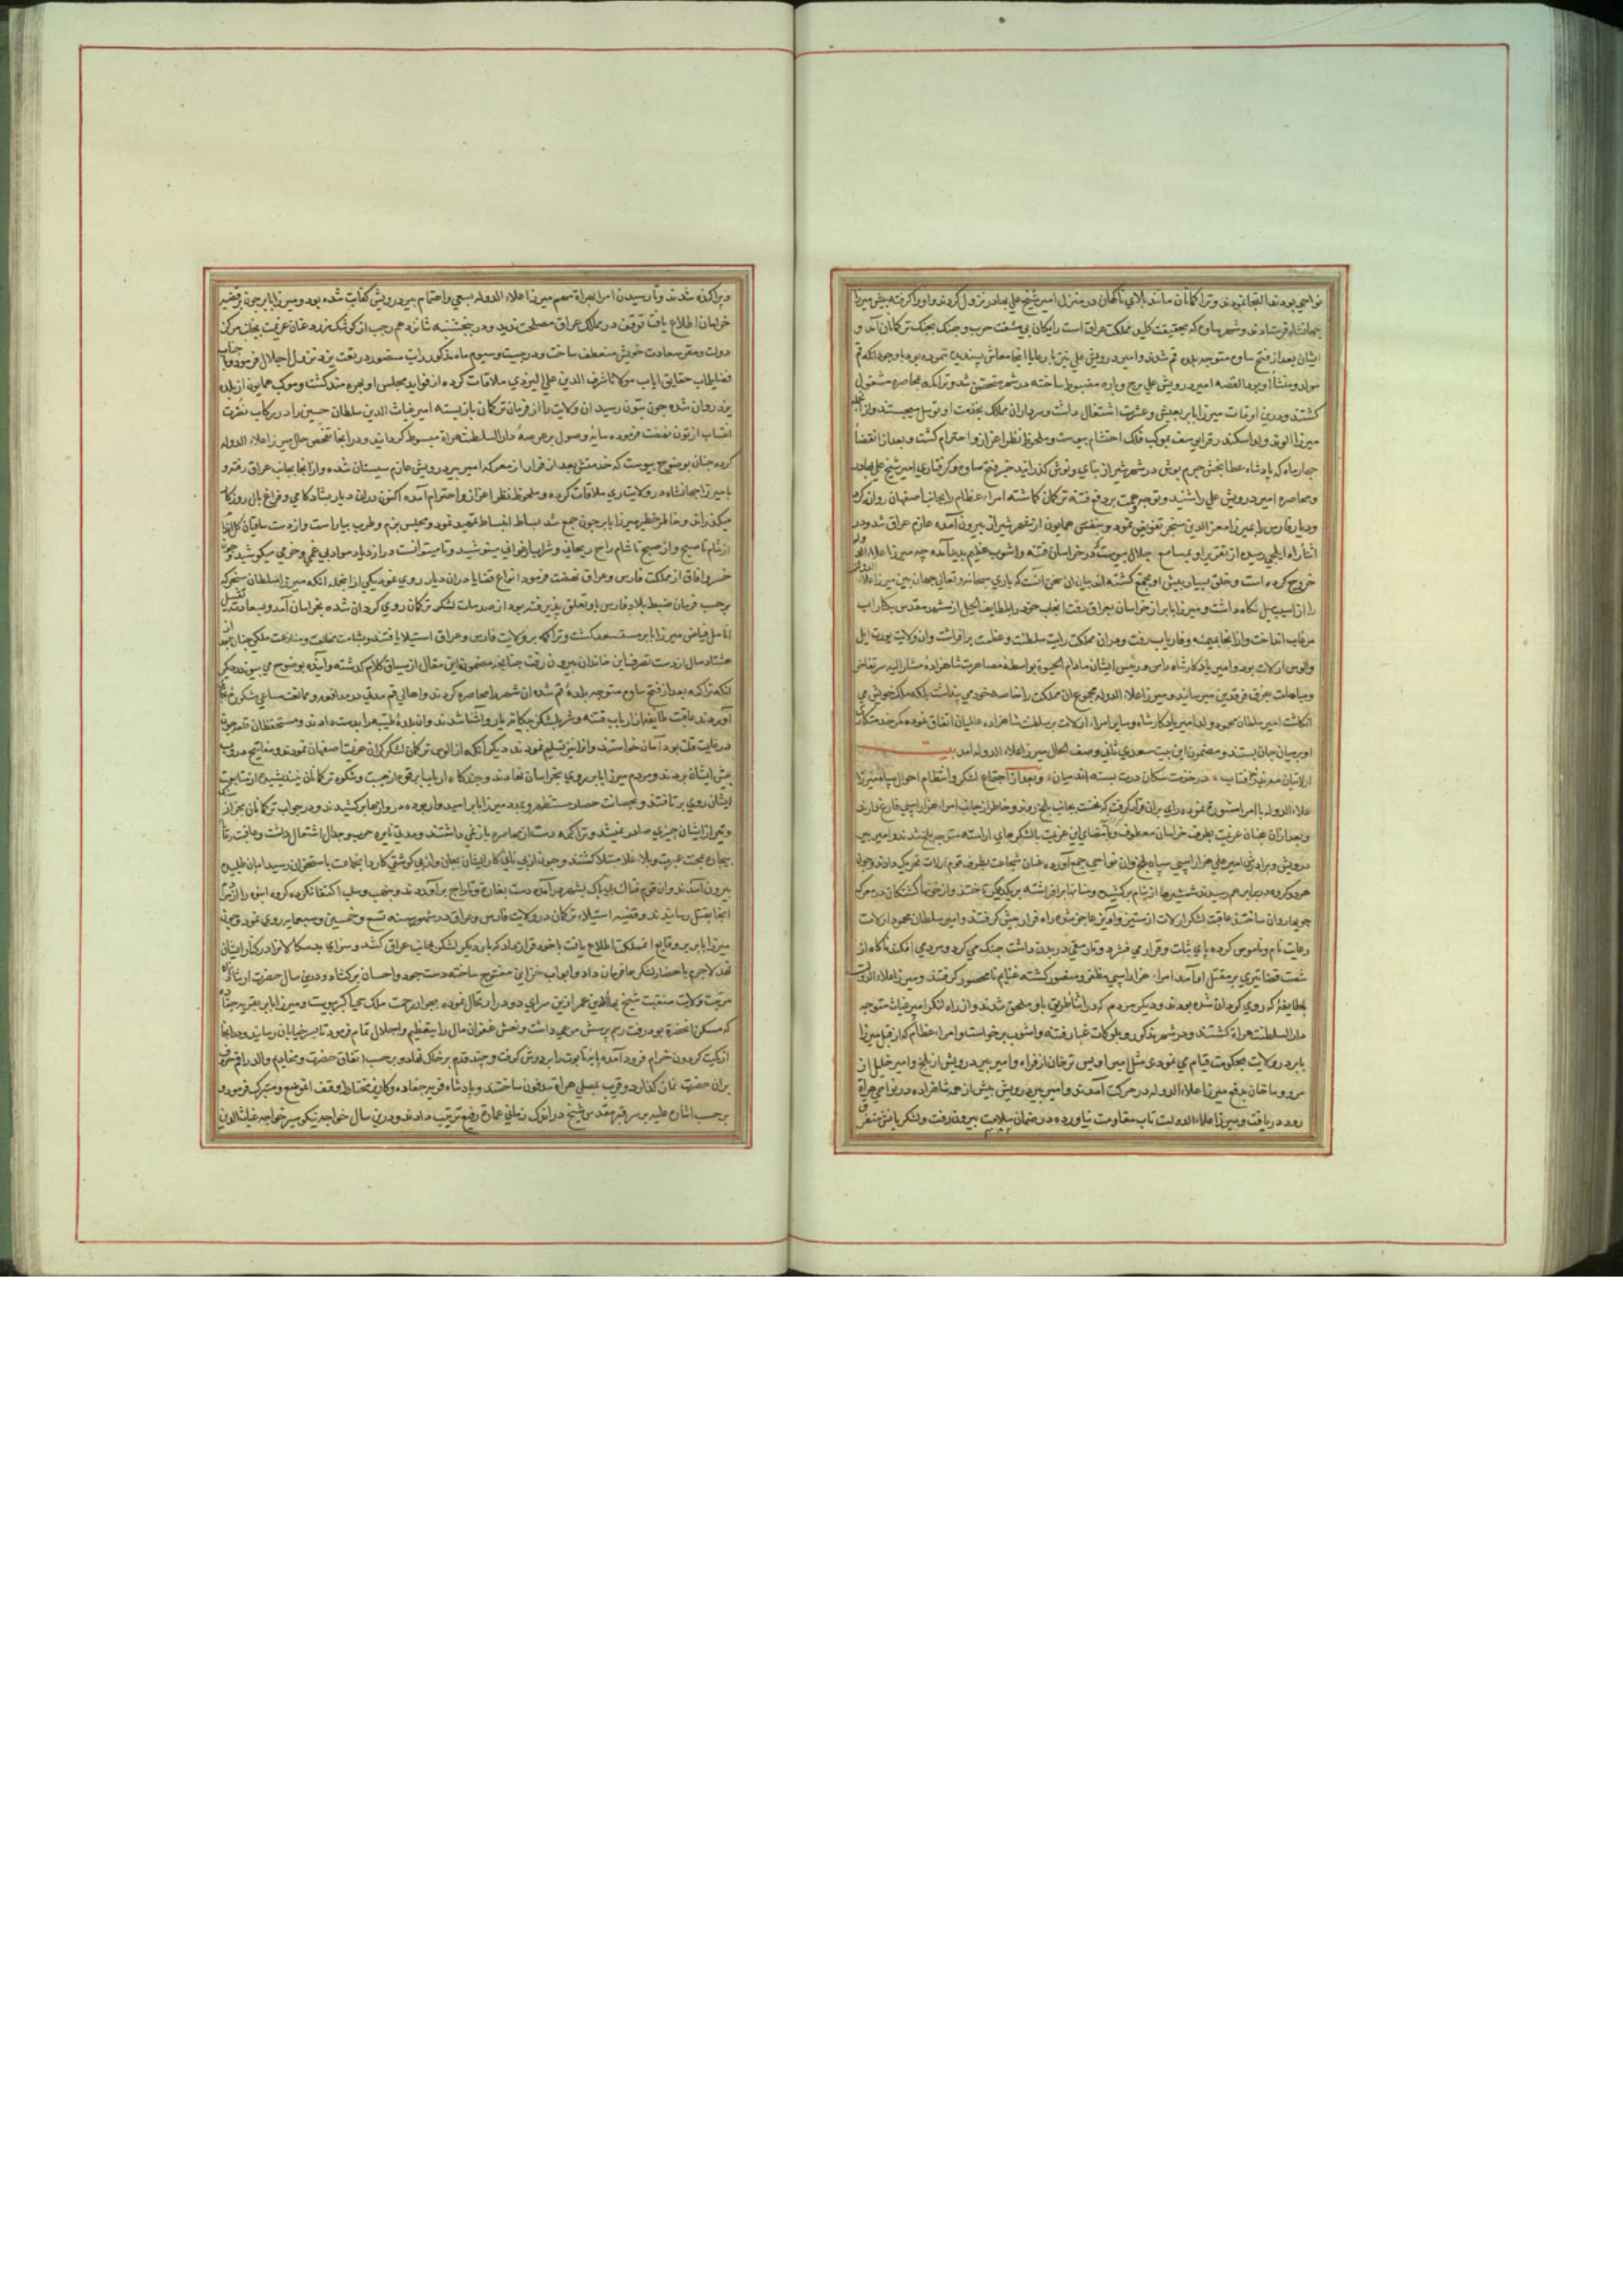 نواحی بودند التجا نمودند و تراکمانان مانند بلای ناگهان در منزل امیر شیخ علی بهادر نزول کردند و او را گرفته پیش میرزا
جهانشاه فرستادند و شهر ساوه که بحقیقت کلید مملکت عراق است رایکان بی مشقت حرب و جنک بچنک ترکمانان آمد و
ایشان بعد از فتح ساوه متوجه بلده قم شدند و امیر درویش علی نیز با رعایا انجا معاش پسندیده ننموده بود با وجود انکه قم
مولد و منشأ او بود القصه امیر درویش علی برج و باره مضبوط ساخته در شهر متحصن شد و تراکمه بمحاصره مشغول
کشتند و درین اوقات میرزا بابر بعیش و عشرت اشتغال داشت و سرداران ممالک بخدمت او توسل میجستند و از انجمله
میرزا الوند ولد اسکندر قرا یوسف بموکب فلک احتشام پیوست و ملحوظ نظر اعزاز و احترام کشت و بعد از انقضا
چهار ماه که پادشاه عطا بخش جرم پوش در شهر شیراز بنای و نوش کذرانید خبر فتح ساوه و کرفتاری امیر شیخ علی بهادر
و محاصره امیر درویش علی را شنید و توجه همت بر دفع فتنه ترکمان کماشته امراء عظام را بجانب اصفهان روان کرد
و دیار فارس را بمیرزا معز الدین سنجر تفویض نمود و بنفس همایون از شهر شیراز بیرون آمده عازم عراق شد و در
اثناء راه ایلچی رسیده از تقریر او بمسامع جلال پیوست که در خراسان فتنه و اشوب عظیم پدید آمده چه میرزا علاء الدوله
خروج کرده است و خلق بسیار پیش او مجتمع کشته اند بیان ان سخن انست که باری سبحانه و تعالی جهان بین میرزا علاء الدوله
را از اسیب میل نکاه داشت و میرزا بابر از خراسان بعراق رفت انجناب خود را بلطایف الحیل از مشهد مقدس بکنار اب
مرغاب انداخت و از انجا بمیمنه و فاریاب رفت و در ان مملکت رایت سلطنت و عظمت بر افراشت و ان ولایت یورت ایل
و الوس ارلات بود و امیر یادکار شاه راس و رئیس ایشان مادام الحیوة بواسطه مصاهرت شاهزاده مشار الیه سر تفاخر
و مباهات بفرق فرقدین میرسانید و میرزا علاء الدوله مجموع ان مملکت را خاصه خود می پنداشت بلکه ملک خویش می
انکاشت امیر سلطان محمود ولد امیر یادکار شاه و سایر امراء ارلات بر سلطنت شاهزاده عالیشان اتفاق نموده کمر خدمتکاری
او بر میان جان بستند و مضمون این بیت سعدی ثانی وصف الحال میرزا علاء الدوله آمد بیت
در خدمت سکان درت بسته اند میان و بعد از اجتماع لشکر و انتظام احوال سپاه میرزا
علاء الدوله با امرا مشورة نموده رای بر ان قرار کرفت که نخست بجانب بلخ روند و خاطر از جانب امراء هزار اسپی فارغ دارند
و بعد از ان عنان عزیمت بطرف خراسان معطوف و بامضای این عزیمت با لشکرهای اراسته متوجه بلخ شدند و امیر پیر
درویش و برادرش امیر علی هزار اسپی سپاه بلخ و ان نواحی جمع آورده عنان شجاعت بطرف قوم ارلات تحریک دادند و چون
هر دو کروه در برابر هم رسیدند شمشیرها از نیام برکشیده و سنانها بر افراشته بر یکدیکر تاختند و از خون کشتکان در معرکه
جویها روان ساختند عاقبت لشکر ارلات از ستیز و آویز عاجز شده راه فرار پیش کرفتند و امیر سلطان محمود ارلات
رعایت نام و ناموس کرده پای ثبات و قرار می فشرد و تا رمقی در بدن داشت جنک می کرد و مرد می افکند ناکاه از
شست قضا تیری بر مقتل او آمد امراء هزار اسپی مظفر و منصور کشته غنایم نامحصور کرفتند و میرزا علاء الدوله
بطایفه که روی کردان شده بودند و دیکر مردم که در اثناء طریق باو ملحق شدند و از راه لنکر امیر غیاث متوجه
دار السلطنه هراة کشتند و در شهر مذکور و بلوکات غبار فتنه و اشوب برخواست و امراء عظام که از قبل میرزا
بابر در ولایات بحکومت قیام می نمودی مثل میر اویس ترخان از فراه و امیر پیر درویش از بلخ و امیر خلیل از
مرو و ماخان بدفع میرزا علاء الدوله در حرکت آمدند و امیر پیر درویش پیش از همه شاهزاده در نواحی هراة
رود دریافت و میرزا علاء الدولت تاب مقاومت نیاورده در ضمان سلامت بیرون رفت و لشکریانش متفرق
و پراکنده شدند و تا رسیدن امرا بهراة مهم میرزا علاء الدوله بسعی و اهتمام پیر درویش کفایت شده بود و میرزا بابر چون بر قضیه
خراسان اطلاع یافت توقف در ممالک عراق مصلحت ندید و در پنجشنبه شانزدهم رجب از کوشک زرد عنان عزیمت بجانب مرکز
دولت و مقر سعادت خویش منعطف ساخت و در بیست و سیوم ماه مذکور رایت منصور در بقعت یزد نزول اجلال فرمود و با جناب
فضایل ماب حقایق ایاب مولانا شرف الدین علی الیزدی ملاقات کرده از فواید مجلس او بهره مند کشت و موکب همایون از بلده
یزد روان شده چون بتون رسید ان ولایت را از فرمان ترکمان باز بسته امیر غیاث الدین سلطان حسین را در رکاب نصرت
انتساب از تون نهضت فرموده سایه وصول بر عرصه دار السلطنت هراة مبسوط کردانید و در انجا تفحص حال میرزا علاء الدوله
کرده چنان بوضوح پیوست که خدمتش بعد از فرار از معرکه امیر پیر درویش عازم سیستان شده و از انجا بجانب عراق رفته و
با میرزا جهانشاه در ولایت ری ملاقات کرده و ملحوظ نظر اعزاز و احترام آمده اکنون در ان دیار بشاد کامی و فراغ بال روزکار
میکذراند و خاطر خطیر میرزا بابر چون جمع شد بساط انبساط تمهید نمود و مجلس بزم و طرب بیاراست و از دست ساقیان کلعذار
از شام تا صبح و از صبح تا شام راح ریحانی و شراب ارغوانی مینوشید و تا میتوانست در ازدیاد مواد بی غمی و خرمی میکوشید و چون
خسرو افاق از مملکت فارس و عراق نهضت فرمود انواع قضایا در ان دیار روی نمود یکی از انجمله انکه میرزا سلطان سنجر که
بر حسب فرمان ضبط بلاد فارس باو تعلق پذیرفته بود از صدمات لشکر ترکمان روی کردان شده بخراسان آمد و بسعادت تقبیل
انامل فیاض میرزا بابر مستسعد کشت و تراکمه بر ولایت فارس و عراق استیلا یافتند و بشامت مخالفت و منازعت ملکی چنان که بعد از
هشتاد سال از دست تصرف این خاندان بیرون رفت چنانچه مضمون این مقال از سیاق کلام کذشته و آینده بوضوح می پیوندد دیکر
انکه تراکمه بعد از فتح ساوه متوجه بلده قم شده ان شهر را محاصره کردند و اهالی قم مدتی در مدافعه و ممانعت مساعی مشکور بجای
آوردند عاقبت طایفه از ارباب فتنه و شر با لشکر بیکانه یار و آشنا شدند و ان بلده طیبه را بدست دادند و مستحفظان قلعه چون
در غایت قلت بود آمان خواستند و انرا نیز تسلیم نمودند دیکر انکه از الوس ترکمان لشکر کران عزیمت اصفهان نمودند و مفاتیح دروب
پیش ایشان بردند و مردم میرزا بابر روی بخراسان نهادند و چند کاه ارباب ابرقوه از هیبت و شکوه ترکمانان نیندیشیده از متابعت
ایشان روی بر تافتند و بحصانت حصار مستظهر و بمدد میرزا بابر امیدوار بوده دروازها بر کشیدند و در جواب ترکمانان بجز از
و تیر از ایشان چیزی صادر نمیشد و تراکمه دست از محاصره باز نمی داشتند و مدتی نایره حرب و جدال اشتعال داشت و عاقبت رعایا
بیچاره بمحنت عسرت و بلاء غلا مبتلا کشتند و چون از بی نانی کار ایشان بجان و از بی کوشتی کارد انجماعت باستخوان رسید امان طلبیده
بیرون آمدند و ان قوم فتاک بی باک بشهر در آمده دست بغارت و تاراج بر آوردند و بنهب و سلب اکتفا نکرده کروه انبوه را از مردم
انجا بقتل رسانیدند و قضیه استیلاء ترکان در ولایت فارس و عراق در شهور سنه تسع و خمسین و سبعمایه روی نمود و چون
میرزا بابر بر وقایع ان مملکت اطلاع یافت با خود قرار داد که بار دیکر لشکر بجانب عراق کشد و سزای بدسکالانرا در کنار ایشان
نهد لاجرم باحضار لشکرها فرمان داد و ابواب خزاین مفتوح ساخته دست جود و احسان بر کشاد و درین سال حضرت ارشاد پناه
مرتبت ولایت منقبت شیخ بهاء الدین عمر ازین سرای دو در ارتحال نموده بجوار رحمت ملک حی اکبر پیوست و میرزا بابر بقریه جغاره
که مسکن انحضرة بود رفت رسم پرسش مرعی داشت و نعش غفران مال را بتعظیم و اجلال تمام فرمود تا بسر خیابان رسانید و در انجا
از یکیت کردون خرام فرود آمده پایه تابوت را بر دوش کرفت و چند قدم بر خاک نهاد و بر حسب اتفاق حضرت و مخادیم والد راقم حروف
بر ان حضرت نماز کذارد و قریب بمصلی هراة مدفون ساختند و پادشاه قریه جغاده و کاریز مختاط وقف انموضع متبرک فرمود و
بر حسب اشاره علیه بر سر قبر مقدس شیخ در اندک زمانی عمارة رفیع ترتیب دادند و درین سال خواجه نیکو سیر خواجه غیاث الدین